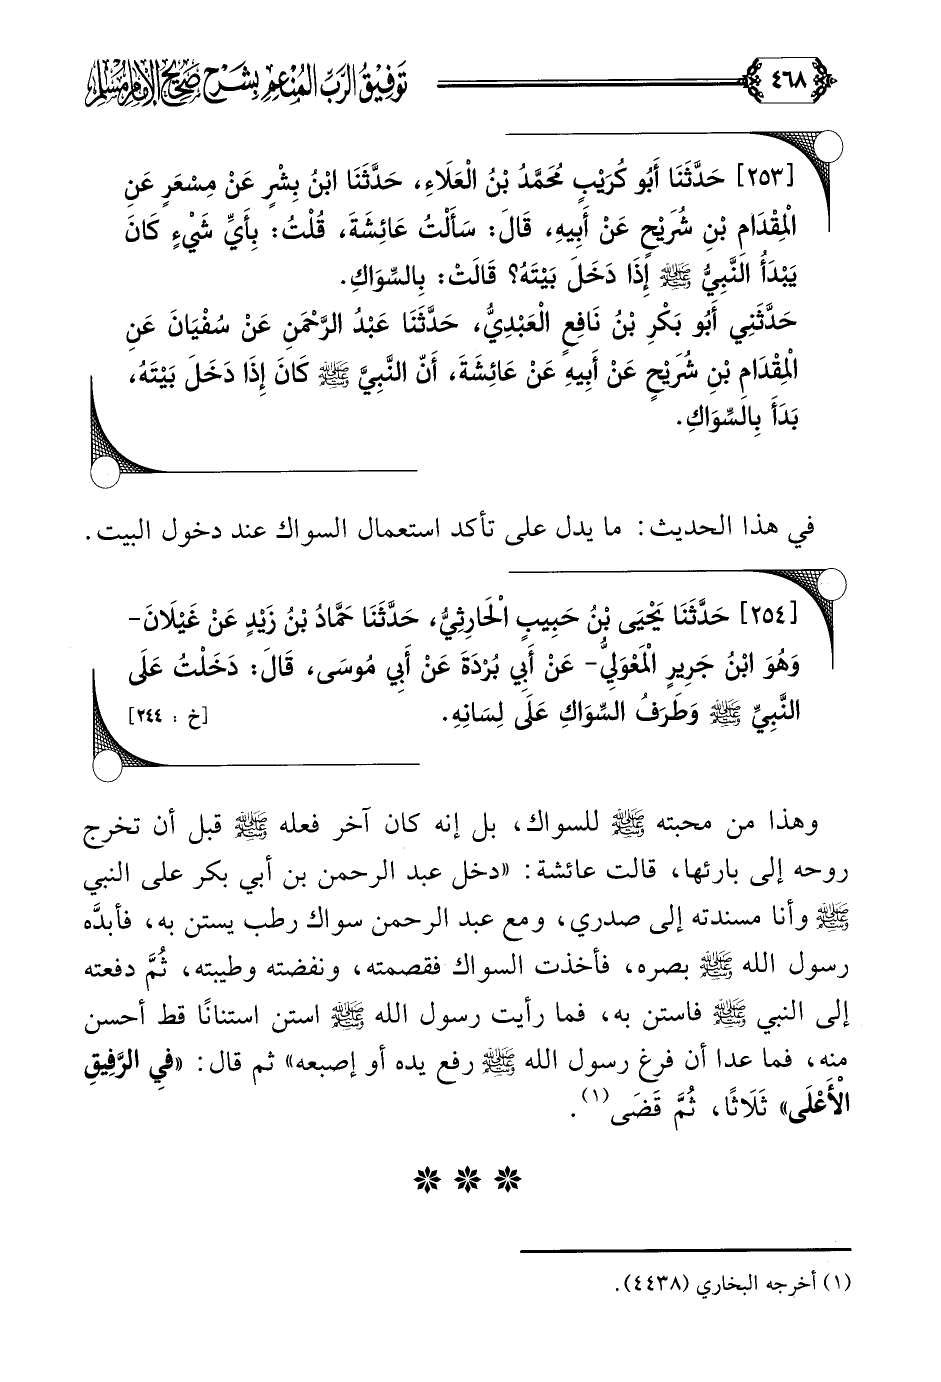 ٤٦٨
توفيق الرب المنعم بشرح صحيح الإمام مسلم
[٢٥٣] حَدَّثَنَا أَبُو كُرَيْبٍ مُحَمَّدُ بْنُ الْعَلَاءِ، حَدَّثَنَا ابْنُ بِشْرٍ عَنْ مِسْعَرٍ عَنِ
الْمِقْدَامِ بْنِ شُرَيْحٍ عَنْ أَبِيهِ، قَالَ: سَأَلْتُ عَائِشَةَ، قُلْتُ: بِأَيِّ شَيْءٍ كَانَ
يَبْدَأُ النَّبِيُّ ﷺ إِذَا دَخَلَ بَيْتَهُ؟ قَالَتْ: بِالسِّوَاكِ.
حَدَّثَنِي أَبُو بَكْرِ بْنُ نَافِعٍ الْعَبْدِيُّ، حَدَّثَنَا عَبْدُ الرَّحْمَنِ عَنْ سُفْيَانَ عَنِ
الْمِقْدَامِ بْنِ شُرَيْحٍ عَنْ أَبِيهِ عَنْ عَائِشَةَ، أَنَّ النَّبِيَّ ﷺ كَانَ إِذَا دَخَلَ بَيْتَهُ،
بَدَأَ بِالسِّوَاكِ.
في هذا الحديث: ما يدل على تأكد استعمال السواك عند دخول البيت.
[٢٥٤] حَدَّثَنَا يَحْيَى بْنُ حَبِيبٍ الْحَارِثِيُّ، حَدَّثَنَا حَمَّادُ بْنُ زَيْدٍ عَنْ غَيْلَانَ-
وَهُوَ ابْنُ جَرِيرٍ الْمَعْوَلِيُّ- عَنْ أَبِي بُرْدَةَ عَنْ أَبِي مُوسَى، قَالَ: دَخَلْتُ عَلَى
النَّبِيِّ ﷺ وَطَرَفُ السِّوَاكِ عَلَى لِسَانِهِ. [خ : ٢٤٤]
وهذا من محبته ﷺ للسواك، بل إنه كان آخر فعله ﷺ قبل أن تخرج
روحه إلى بارئها، قالت عائشة: «دخل عبد الرحمن بن أبي بكر على النبي
ﷺ وأنا مسندته إلى صدري، ومع عبد الرحمن سواك رطب يستن به، فأبدَّه
رسول الله ﷺ بصره، فأخذت السواك فقصمته، ونفضته وطيبته، ثُمَّ دفعته
إلى النبي ﷺ فاستن به، فما رأيت رسول الله ﷺ استن استنانًا قط أحسن
منه، فما عدا أن فرغ رسول الله ﷺ رفع يده أو إصبعه» ثم قال: «فِي الرَّفِيقِ
الْأَعْلَى» ثَلَاثًا، ثُمَّ قَضَى(١).
(١) أخرجه البخاري (٤٤٣٨).